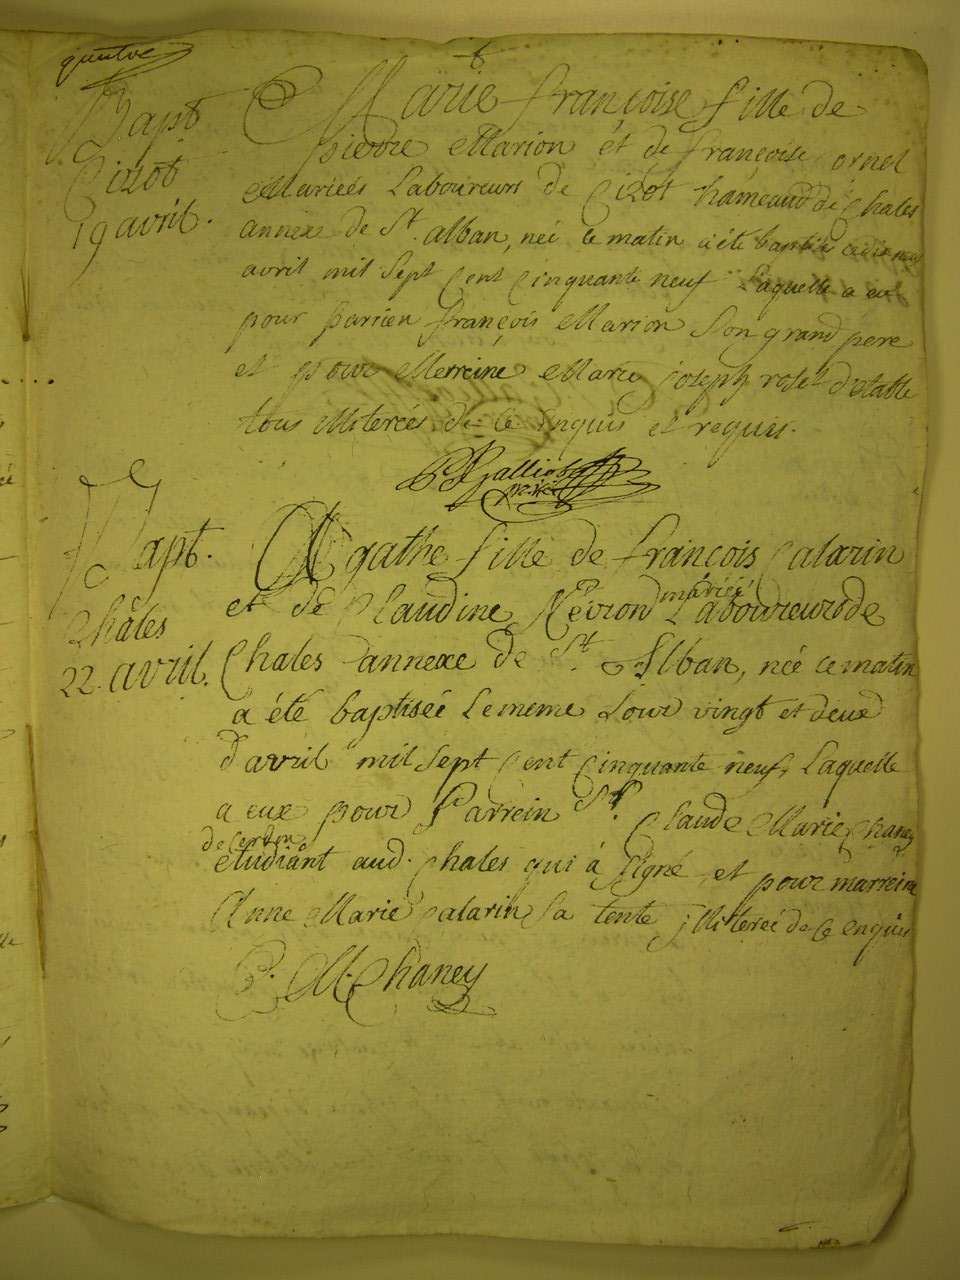 quatre
6
Bapt
Cizot
19 avril.
Marie françoise fille de
pierre Marion et de françoise Cornel
Mariés Laboureurs de Cizot hameaud de Chales
annexe de St. alban, neé ce matin a été baptisée ce dix neuf
avril mil Sept Cent Cinquante neuf Laquelle a eu
pour parrien françois Marion Son grand pere
et pour Merreine Marie joseph roset d'étable
tous illiterées de ce Enquis et requis.
Bapt.
Châles
22. avril.
Agathe fille de françois Calarin
et de Claudine Nevron mariés Laboureurs de
Chales annexe de St. Alban, neé ce matin
a été baptisée Le meme Jour vingt et deux
d'avril mil Sept Cent Cinquante neuf, Laquelle
a eue pour Parrein Sr. Claude Marie Chaney
de Cerdon
étudiant aud. Chales qui à Signé et pour marreine
Anne Marie Calarin Sa tente illiterée de ce enquis
C. M. Chaney